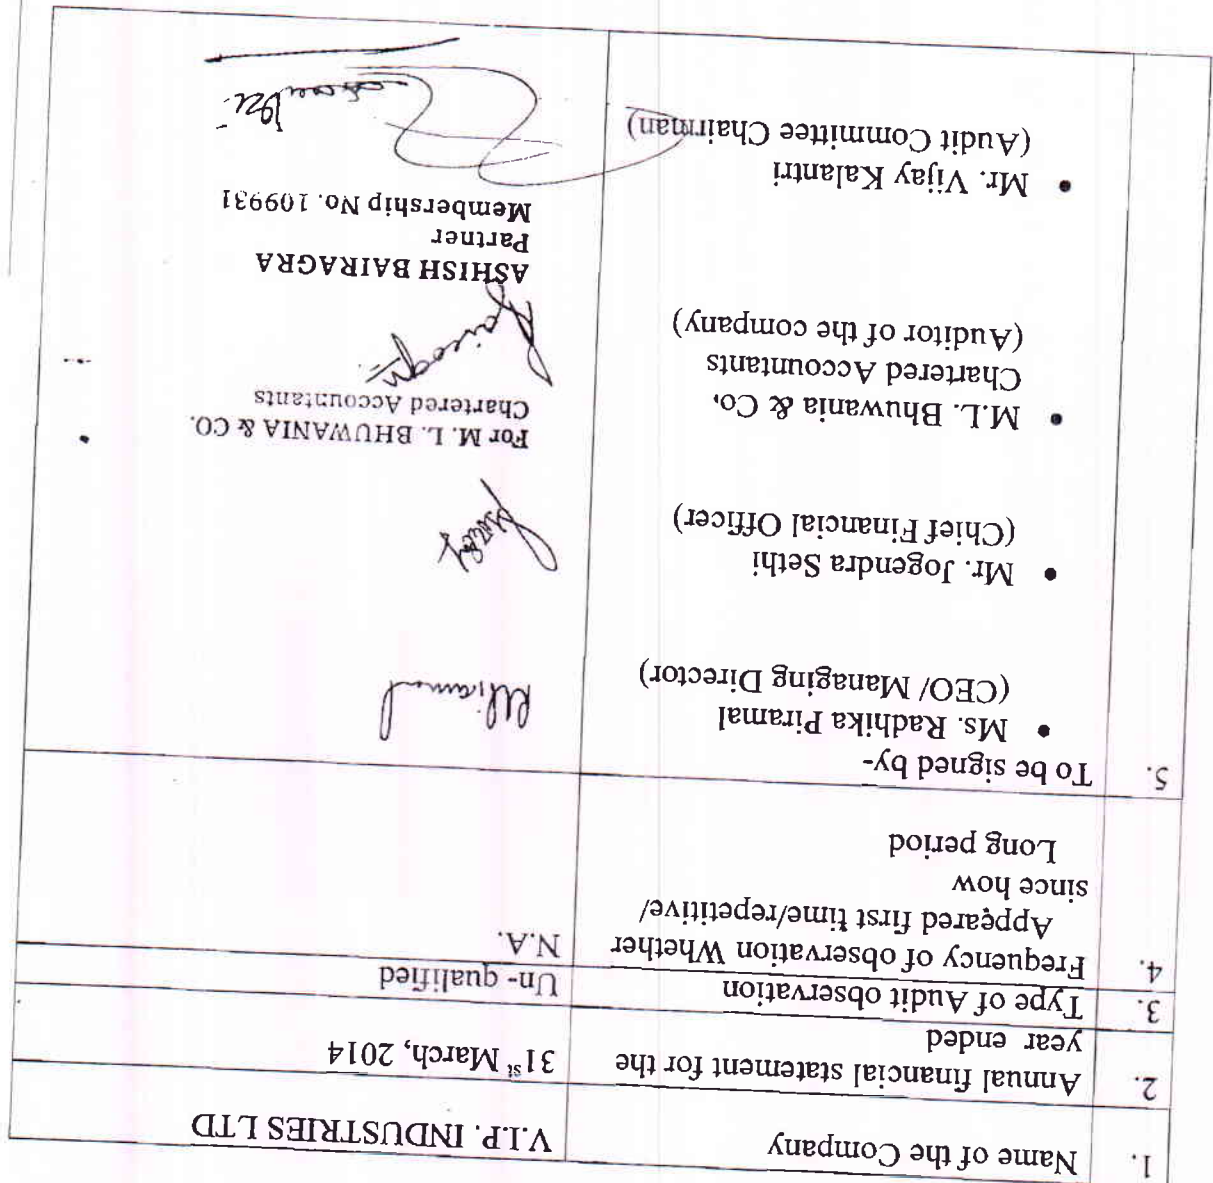 1.
Name of the Company
V.I.P. INDUSTRIES LTD
2.
Annual financial statement for the
year ended
31st March, 2014
3.
Type of Audit observation
Un- qualified
4.
Frequency of observation Whether
Appeared first time/repetitive/
since how
Long period
N.A.
5.
To be signed by-
• Ms. Radhika Piramal
(CEO/ Managing Director)
• Mr. Jogendra Sethi
(Chief Financial Officer)
• M.L. Bhuwania & Co.
Chartered Accountants
(Auditor of the company)
For M. L. BHUWANIA & CO.
Chartered Accountants
ASHISH BAIRAGRA
Partner
Membership No. 109931
• Mr. Vijay Kalantri
(Audit Committee Chairman)